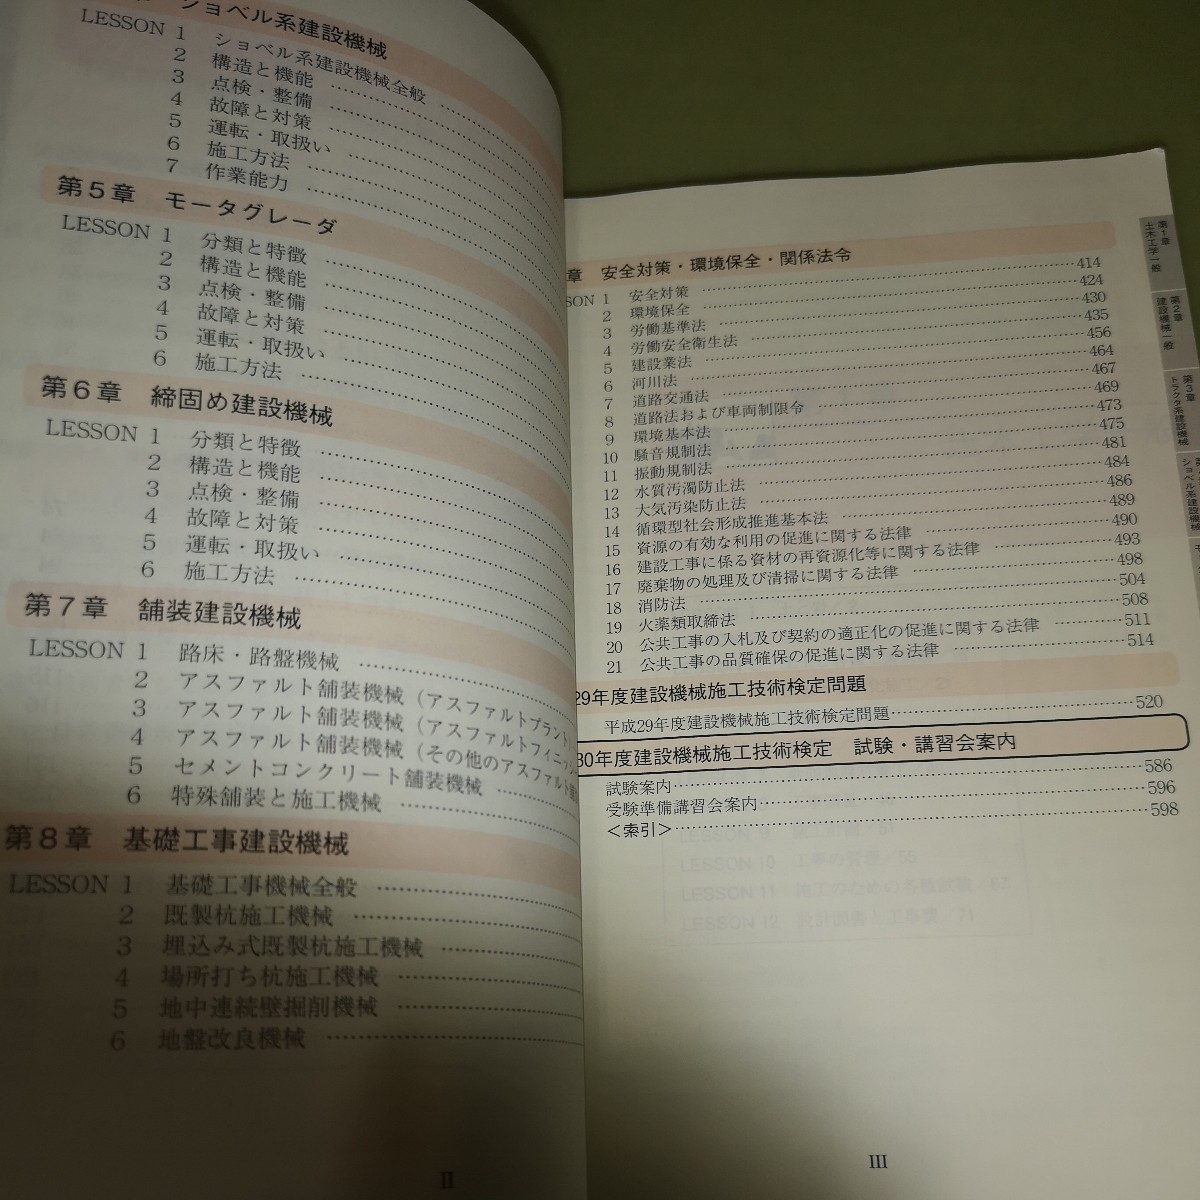 ショベル系建設機械
LESSON 1 ショベル系建設機械全般
2 構造と機能
3 点検・整備
4 故障と対策
5 運転・取扱い
6 施工方法
7 作業能力
第5章 モータグレーダ
LESSON 1 分類と特徴
2 構造と機能
3 点検・整備
4 故障と対策
5 運転・取扱い
6 施工方法
第6章 締固め建設機械
LESSON 1 分類と特徴
2 構造と機能
3 点検・整備
4 故障と対策
5 運転・取扱い
6 施工方法
第7章 舗装建設機械
LESSON 1 路床・路盤機械
2 アスファルト舗装機械（アスファルトプラント）
3 アスファルト舗装機械（アスファルトフィニッシ
4 アスファルト舗装機械（その他のアスファルト舗
5 セメントコンクリート舗装機械
6 特殊舗装と施工機械
第8章 基礎工事建設機械
LESSON 1 基礎工事機械全般
2 既製杭施工機械
3 埋込み式既製杭施工機械
4 場所打ち杭施工機械
5 地中連続壁掘削機械
6 地盤改良機械
II
章 安全対策・環境保全・関係法令
SON 1 安全対策 414
2 環境保全 424
3 労働基準法 430
4 労働安全衛生法 435
5 建設業法 456
6 河川法 464
7 道路交通法 467
8 道路法および車両制限令 469
9 環境基本法 473
10 騒音規制法 475
11 振動規制法 481
12 水質汚濁防止法 484
13 大気汚染防止法 486
14 循環型社会形成推進基本法 489
15 資源の有効な利用の促進に関する法律 490
16 建設工事に係る資材の再資源化等に関する法律 493
17 廃棄物の処理及び清掃に関する法律 498
18 消防法 504
19 火薬類取締法 508
20 公共工事の入札及び契約の適正化の促進に関する法律 511
21 公共工事の品質確保の促進に関する法律 514
29年度建設機械施工技術検定問題
平成29年度建設機械施工技術検定問題 520
30年度建設機械施工技術検定 試験・講習会案内
試験案内 586
受験準備講習会案内 596
＜索引＞ 598
LESSON 10 工事の管理／55
LESSON 11 施工のための各種試験／67
LESSON 12 設計図書と工事費／71
III
第1章
土木工学一般
第2章
建設機械一般
第3章
トラクタ系建設機械
ショベル系建設機械